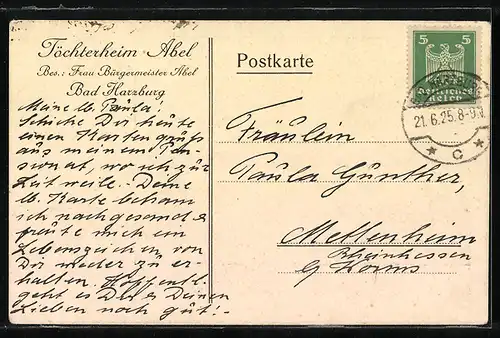 Töchterheim Abel
Bes.: Frau Bürgermeister Abel
Bad Harzburg
Meine lb. Paula!
Schicke Dir heute
einen Kartengruß
aus meinem Pen-
sionat, wo ich zur
Zeit weile. Deine
lb. Karte bekam
ich nachgesandt &
freute mich ein
Lebenszeichen von
Dir wieder zu er-
halten. Hoffentl.
geht es Dir & Deinen
Lieben noch gut!
Postkarte
5 5
Deutsches
Reich
21.6.25.8-9V.
* C *
Fräulein
Paula Gunther,
Mettenheim
Rheinhessen
b/ Worms